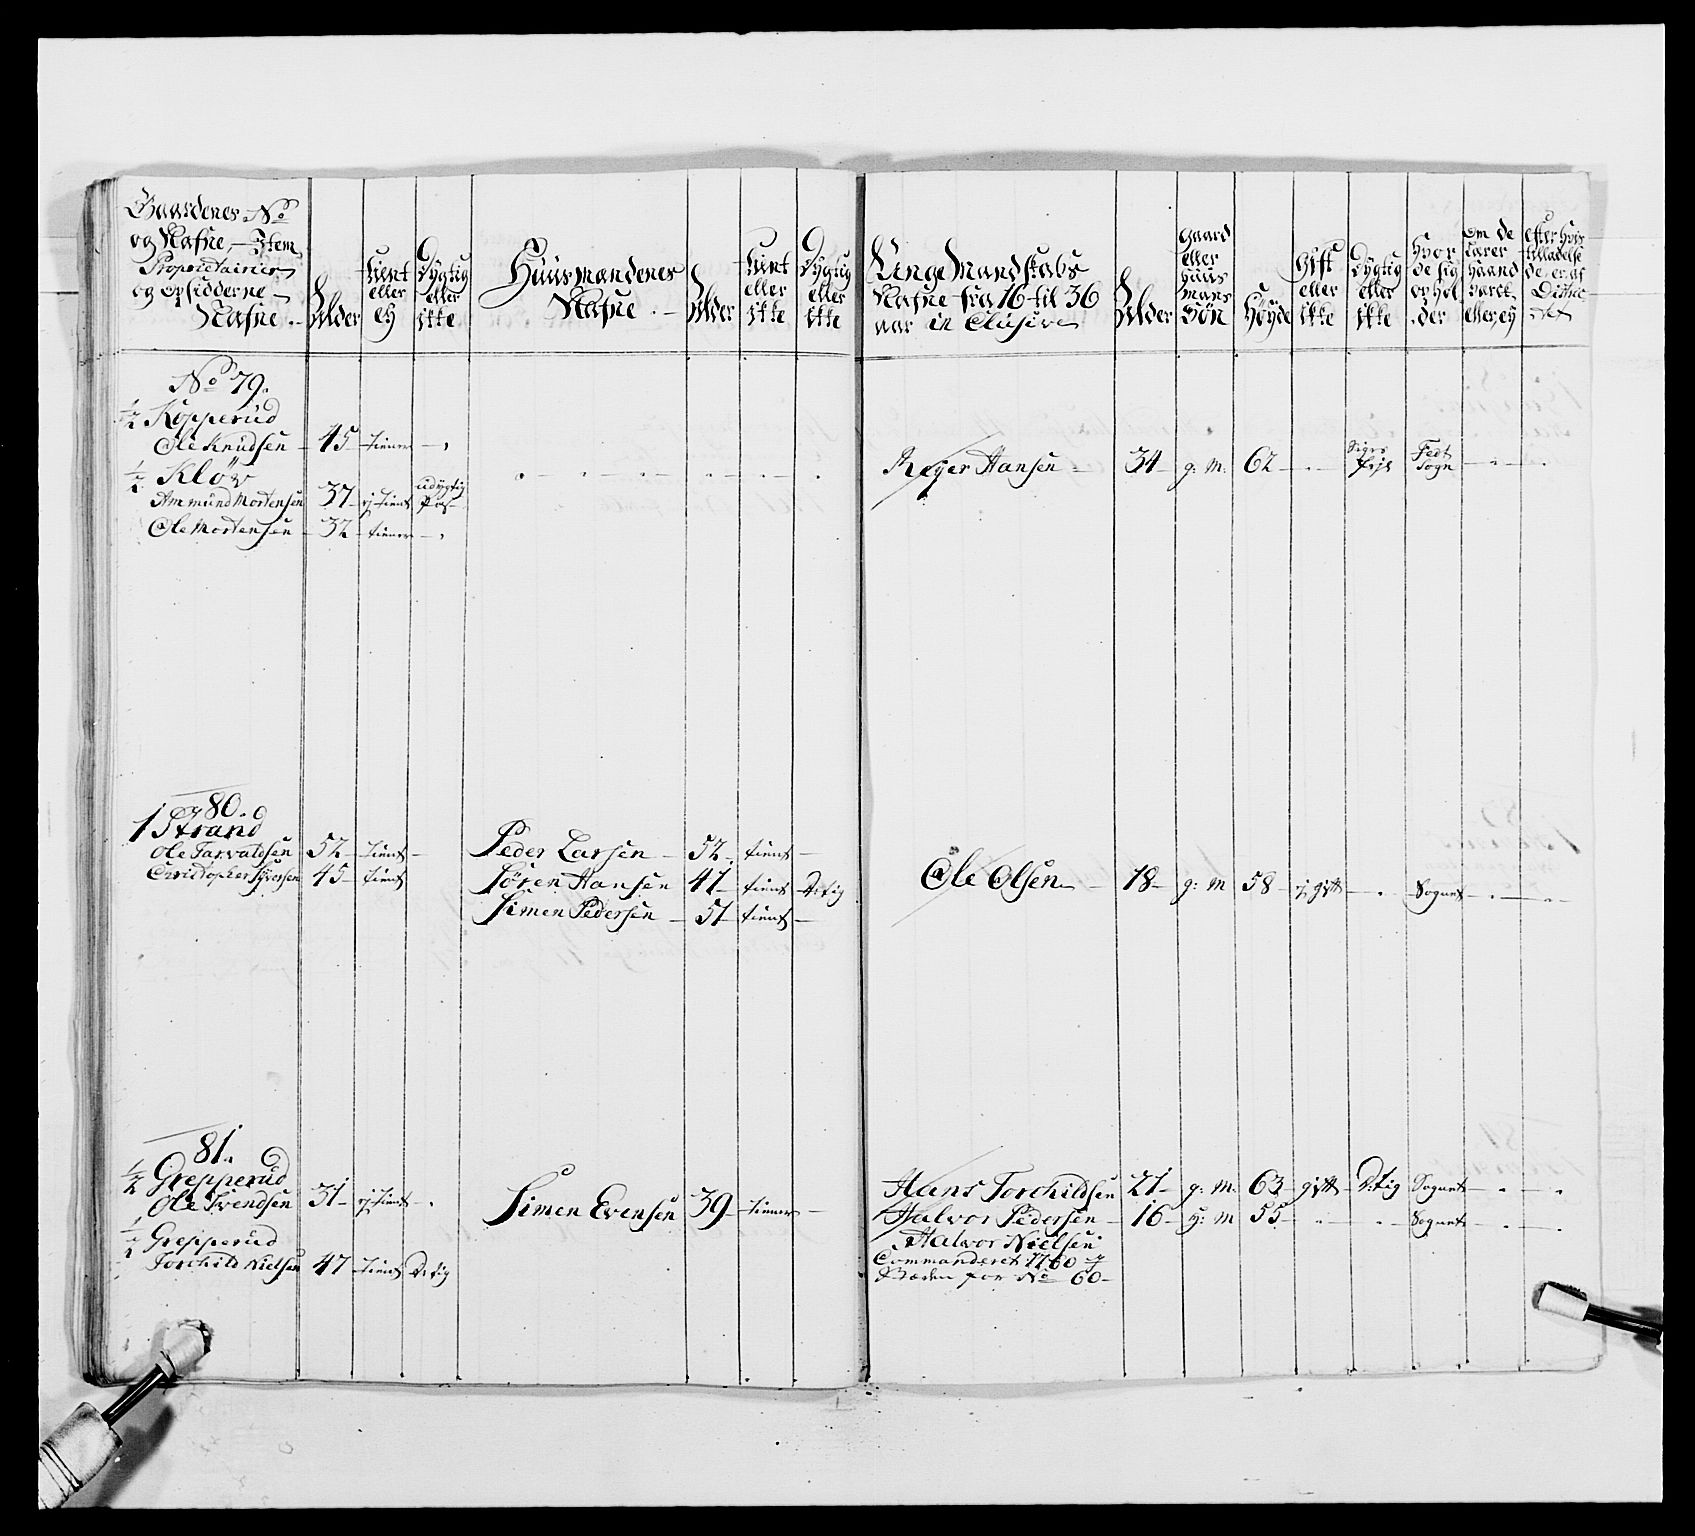 Gaardenes No
og Nafne, - Item
Proprietairier
og opsidderne
Nafne.
Alder
tient
eller
ej
Dygtig
eller
ikke
Huusmandenes
Nafne.
Alder
tient
eller
ikke
Dygtig
eller
ikke
Unge Mandskabs
Nafne fra 16 til 36
aar inClusive
Alder
gaard
eller
huus
mans
Søn
Høyde
Gift
eller
ikke
Dygtig
eller
ikke
Hvor
de sig
op hol
der
Om de
tærer
Haand
eller, ej
efter hvis
tilladelse
de er af
Distric
No 79.
1/2 Kopperud
Ole Knudsen - 45 - tiener
1/2 Kløv
Ammund Mortensen 37 - ej tient udygtig
Ole Mortensen - 32 - tiener
Reyer Hansen - 34 - g: M: 62 Sogn
80.
1 Strand
Ole Tarvaldsen 52 - tient -
Christopher Syversen 45 - tient
Peder Larsen - 52 - tient -
Søren Hansen 47 - tient Dytig
Simen Pedersen - 51 - tient -
Ole Olsen - 18 - g: M 58 - ej gift - Sognet
81.
1/2 Grepperud
Ole Svendsen 31 - ej tient
1/2 Grepperud
Torchild Nielsen 47 - tient Dytig
Simen Evensen 39 - tiener -
Hans Torchildsen 21 - g: M: 63 - gift - Dytig Sognet
Halvor Pedersen - 16 - g: M 55 - Sognet
Halvor Nielsen
Commanderet 1760
for No 60 -